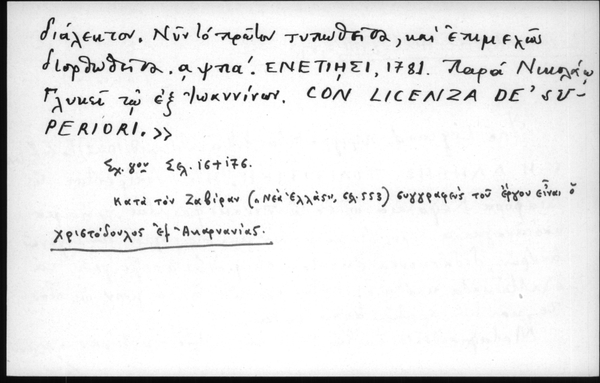 διάλεκτον. Νῦν τὸ πρῶτον τυπωθεῖσα, καὶ ἐπιμελῶς
διορθωθεῖσα. αψπα΄. ΕΝΕΤΙῌΣΙ, 1781. Παρὰ Νικολάῳ
Γλυκεῖ τῷ ἐξ Ἰωαννίνων. CON LICENZA DE' SU-
PERIORI.>>
Σχ. 8ον Σελ. 16+176.
Κατὰ τὸν Ζαβίραν (Νέα Ἑλλάς, σελ. 553) συγγραφεὺς τοῦ ἔργου εἶναι ὁ
Χριστόδουλος ἐξ Ἀκαρνανίας.